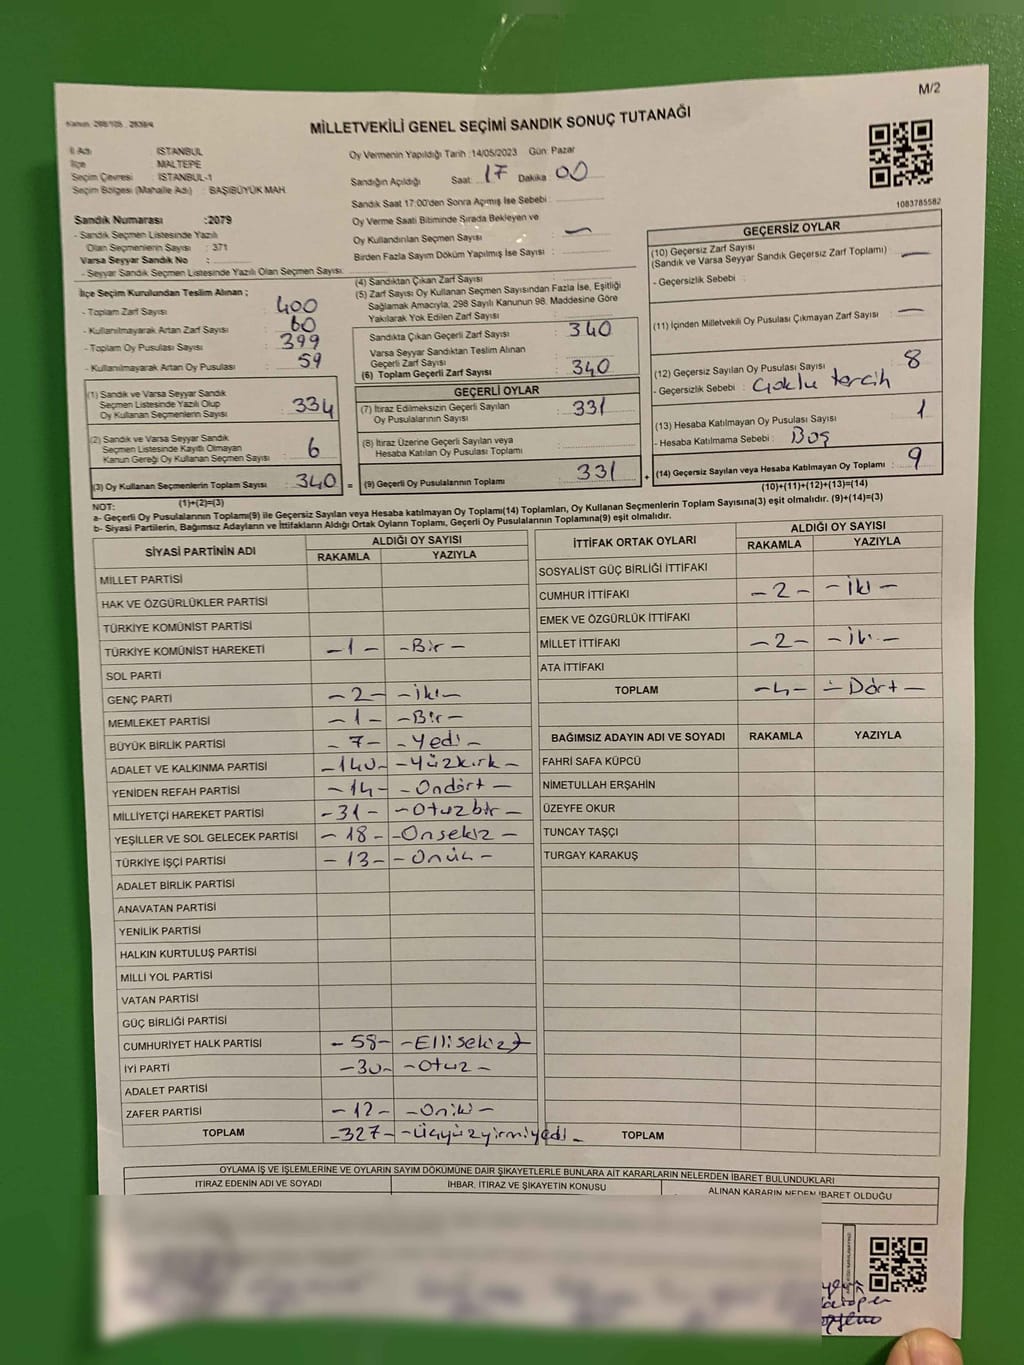 M/2
Kanun: 298/105, 2839/4
MİLLETVEKİLİ GENEL SEÇİMİ SANDIK SONUÇ TUTANAĞI
İl Adı : İSTANBUL
İlçe : MALTEPE
Seçim Çevresi : İSTANBUL-1
Seçim Bölgesi (Mahalle Adı) : BAŞIBÜYÜK MAH.
Sandık Numarası :2079
- Sandık Seçmen Listesinde Yazılı
Olan Seçmenlerin Sayısı : 371
Varsa Seyyar Sandık No :
- Seyyar Sandık Seçmen Listesinde Yazılı Olan Seçmen Sayısı:
Oy Vermenin Yapıldığı Tarih :14/05/2023 Gün: Pazar
Sandığın Açıldığı Saat: 17 Dakika: 00
Sandık Saat 17:00'den Sonra Açımış İse Sebebi :
Oy Verme Saati Bitiminde Sırada Bekleyen ve
Oy Kullandırılan Seçmen Sayısı : —
Birden Fazla Sayım Döküm Yapılmış İse Sayısı :
1083785582
İlçe Seçim Kurulundan Teslim Alınan ;
- Toplam Zarf Sayısı : 400
- Kullanılmayarak Artan Zarf Sayısı : 60
- Toplam Oy Pusulası Sayısı : 399
- Kullanılmayarak Artan Oy Pusulası : 59
(1) Sandık ve Varsa Seyyar Sandık
Seçmen Listesinde Yazılı Olup
Oy Kullanan Seçmenlerin Sayısı : 334
(2) Sandık ve Varsa Seyyar Sandık
Seçmen Listesinde Kayıtlı Olmayan
Kanun Gereği Oy Kullanan Seçmen Sayısı : 6
(3) Oy Kullanan Seçmenlerin Toplam Sayısı : 340 =
(1)+(2)=(3)
(4) Sandıktan Çıkan Zarf Sayısı :
(5) Zarf Sayısı Oy Kullanan Seçmen Sayısından Fazla İse, Eşitliği
Sağlamak Amacıyla, 298 Sayılı Kanunun 98. Maddesine Göre
Yakılarak Yok Edilen Zarf Sayısı :
Sandıkta Çıkan Geçerli Zarf Sayısı : 340
Varsa Seyyar Sandıktan Teslim Alınan
Geçerli Zarf Sayısı :
(6) Toplam Geçerli Zarf Sayısı : 340
GEÇERLİ OYLAR
(7) İtiraz Edilmeksizin Geçerli Sayılan
Oy Pusulalarının Sayısı : 331
(8) İtiraz Üzerine Geçerli Sayılan veya
Hesaba Katılan Oy Pusulası Toplamı :
(9) Geçerli Oy Pusulalarının Toplamı : 331 +
GEÇERSİZ OYLAR
(10) Geçersiz Zarf Sayısı
(Sandık ve Varsa Seyyar Sandık Geçersiz Zarf Toplamı) : —
- Geçersizlik Sebebi :
(11) İçinden Milletvekili Oy Pusulası Çıkmayan Zarf Sayısı : —
(12) Geçersiz Sayılan Oy Pusulası Sayısı : 8
- Geçersizlik Sebebi : Çoklu tercih
(13) Hesaba Katılmayan Oy Pusulası Sayısı : 1
- Hesaba Katılmama Sebebi : Boş
(14) Geçersiz Sayılan veya Hesaba Katılmayan Oy Toplamı : 9
(10)+(11)+(12)+(13)=(14)
NOT:
a- Geçerli Oy Pusulalarının Toplamı(9) ile Geçersiz Sayılan veya Hesaba katılmayan Oy Toplamı(14) Toplamları, Oy Kullanan Seçmenlerin Toplam Sayısına(3) eşit olmalıdır. (9)+(14)=(3)
b- Siyasi Partilerin, Bağımsız Adayların ve İttifakların Aldığı Ortak Oyların Toplamı, Geçerli Oy Pusulalarının Toplamına(9) eşit olmalıdır.
SİYASİ PARTİNİN ADI ALDIĞI OY SAYISI
RAKAMLA YAZIYLA
MİLLET PARTİSİ
HAK VE ÖZGÜRLÜKLER PARTİSİ
TÜRKİYE KOMÜNİST PARTİSİ
TÜRKİYE KOMÜNİST HAREKETİ -1- -Bir-
SOL PARTİ
GENÇ PARTİ -2- -İki-
MEMLEKET PARTİSİ -1- -Bir-
BÜYÜK BİRLİK PARTİSİ -7- -Yedi-
ADALET VE KALKINMA PARTİSİ -140- -Yüzkırk-
YENİDEN REFAH PARTİSİ -14- -Ondört-
MİLLİYETÇİ HAREKET PARTİSİ -31- -Otuzbir-
YEŞİLLER VE SOL GELECEK PARTİSİ -18- -Onsekiz-
TÜRKİYE İŞÇİ PARTİSİ -13- -Onüç-
ADALET BİRLİK PARTİSİ
ANAVATAN PARTİSİ
YENİLİK PARTİSİ
HALKIN KURTULUŞ PARTİSİ
MİLLİ YOL PARTİSİ
VATAN PARTİSİ
GÜÇ BİRLİĞİ PARTİSİ
CUMHURİYET HALK PARTİSİ -58- -Ellisekiz-
İYİ PARTİ -30- -Otuz-
ADALET PARTİSİ
ZAFER PARTİSİ -12- -Oniki-
TOPLAM -327- -Üçyüzyirmiyedi-
İTTİFAK ORTAK OYLARI ALDIĞI OY SAYISI
RAKAMLA YAZIYLA
SOSYALİST GÜÇ BİRLİĞİ İTTİFAKI
CUMHUR İTTİFAKI -2- -İki-
EMEK VE ÖZGÜRLÜK İTTİFAKI
MİLLET İTTİFAKI -2- -İki-
ATA İTTİFAKI
TOPLAM -4- -Dört-
BAĞIMSIZ ADAYIN ADI VE SOYADI RAKAMLA YAZIYLA
FAHRİ SAFA KÜPCÜ
NİMETULLAH ERŞAHİN
ÜZEYFE OKUR
TUNCAY TAŞÇI
TURGAY KARAKUŞ
TOPLAM
OYLAMA İŞ VE İŞLEMLERİNE VE OYLARIN SAYIM DÖKÜMÜNE DAİR ŞİKAYETLERLE BUNLARA AİT KARARLARIN NELERDEN İBARET BULUNDUKLARI
İTİRAZ EDENİN ADI VE SOYADI İHBAR, İTİRAZ VE ŞİKAYETİN KONUSU ALINAN KARARIN NEDEN İBARET OLDUĞU